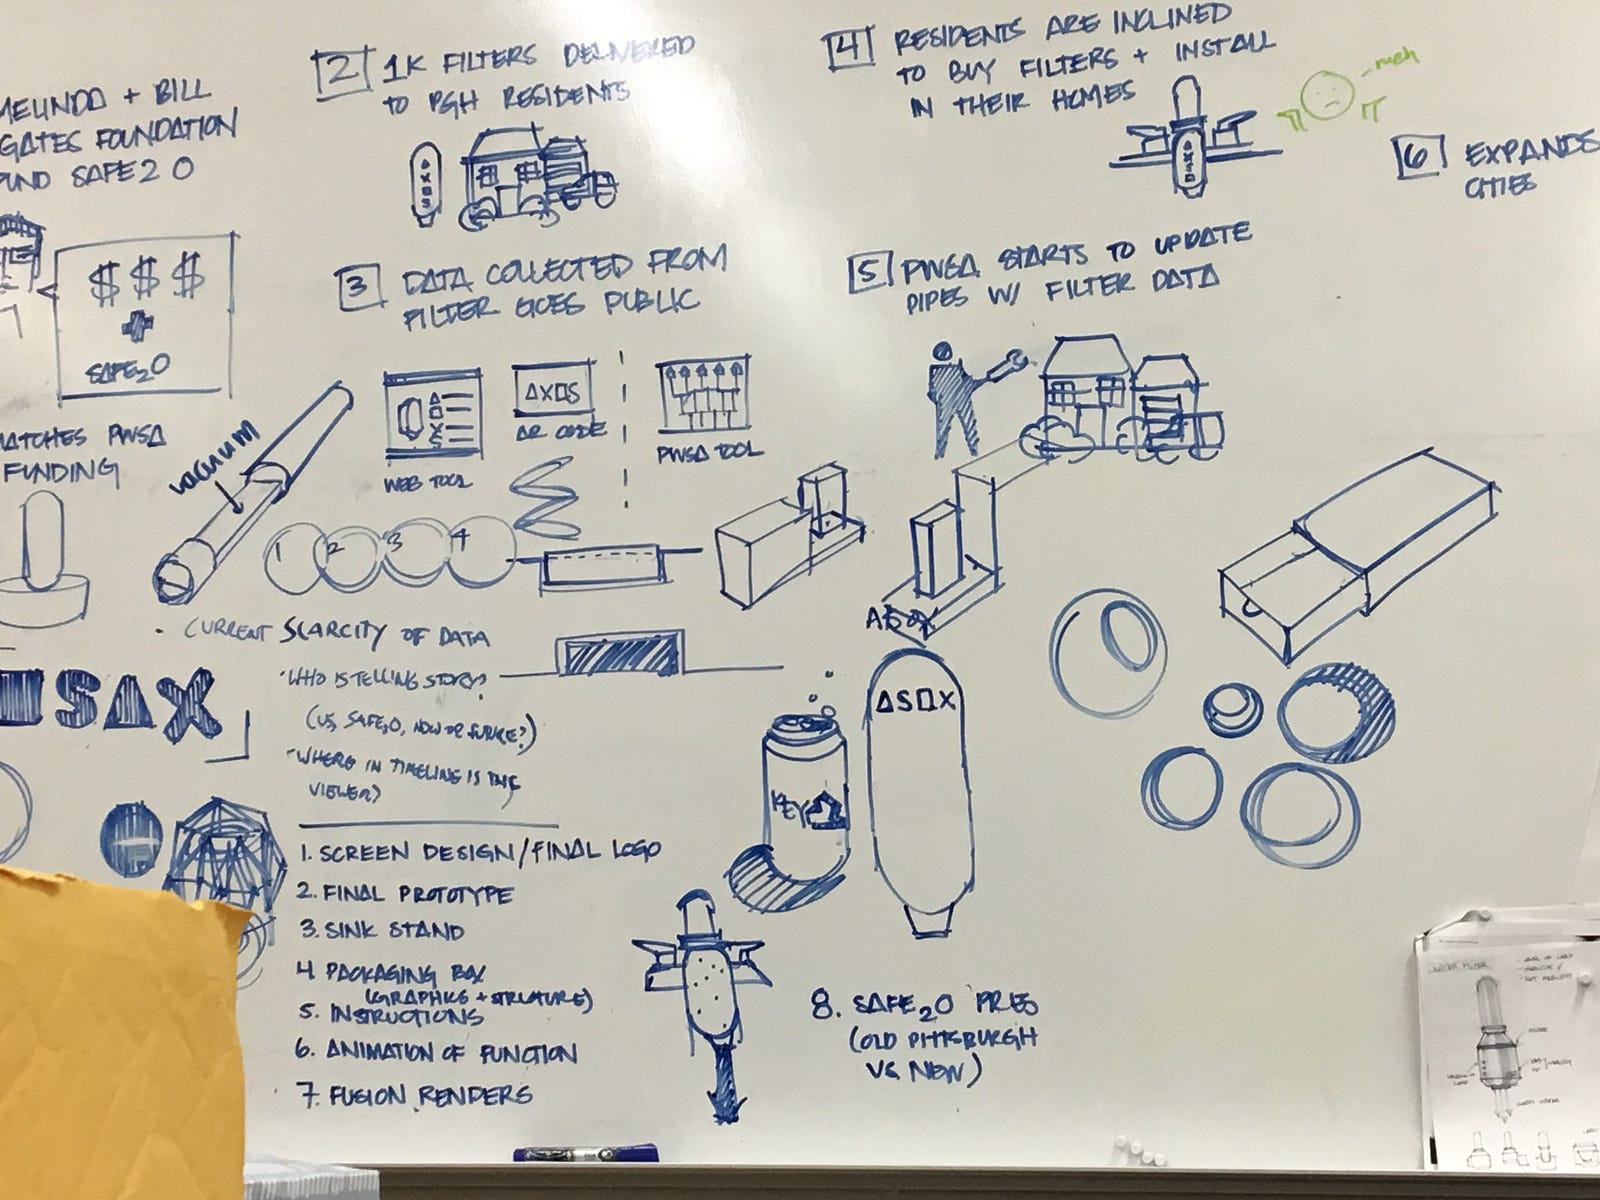 MELINDA + BILL
GATES FOUNDATION
FUND SAFE2O
$ $ $
SAFE2O
MATCHES PWSA
FUNDING
2 1K FILTERS DELIVERED
TO PGH RESIDENTS
3 DATA COLLECTED FROM
FILTER GOES PUBLIC
ΔX□S
WEB TOOL
AR CODE
PWSA TOOL
4 RESIDENTS ARE INCLINED
TO BUY FILTERS + INSTALL
IN THEIR HOMES
meh
5 PWSA STARTS TO UPDATE
PIPES W/ FILTER DATA
6 EXPANDS
CITIES
VACUUM
1 2 3 4
• CURRENT SCARCITY OF DATA
□SΔX
• WHO IS TELLING STORY?
(US, SAFE2O, NOW OR FUTURE?)
• WHERE IN TIMELINE IS THE
VIEWER?
ΔS□X
KEY
1. SCREEN DESIGN/FINAL LOGO
2. FINAL PROTOTYPE
3. SINK STAND
4 PACKAGING BOX
(GRAPHICS + STRUCTURE)
5. INSTRUCTIONS
6. ANIMATION OF FUNCTION
7. FUSION RENDERS
8. SAFE2O PRES
(OLD PITTSBURGH
VS NEW)